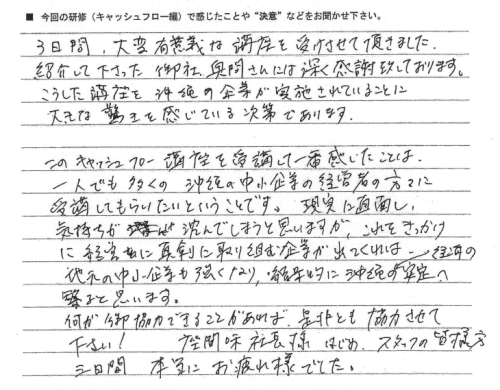 ■ 今回の研修（キャッシュフロー編）で感じたことや“決意”などをお聞かせ下さい。
3日間、大変有意義な講座を受けさせて頂きました。
紹介して下さった御社、奥間さんには深く感謝致しております。
こうした講座を沖縄の企業が実施されていることに
大きな驚きを感じている次第であります。
このキャッシュフロー講座を受講して一番感じたことは、
一人でも多くの沖縄の中小企業の経営者の方々に
受講してもらいたいということです。現実に直面し、
気持ちが沈んでしまうと思いますが、これをきっかけ
に経営に真剣に取り組む企業が出てくれば
地元の中小企業も強くなり、結果的に沖縄経済の安定へ
繋ると思います。
何か御協力できることがあれば、是非とも協力させて
下さい! 座間味社長様はじめ、スタッフの皆様方
三日間本当にお疲れ様でした。